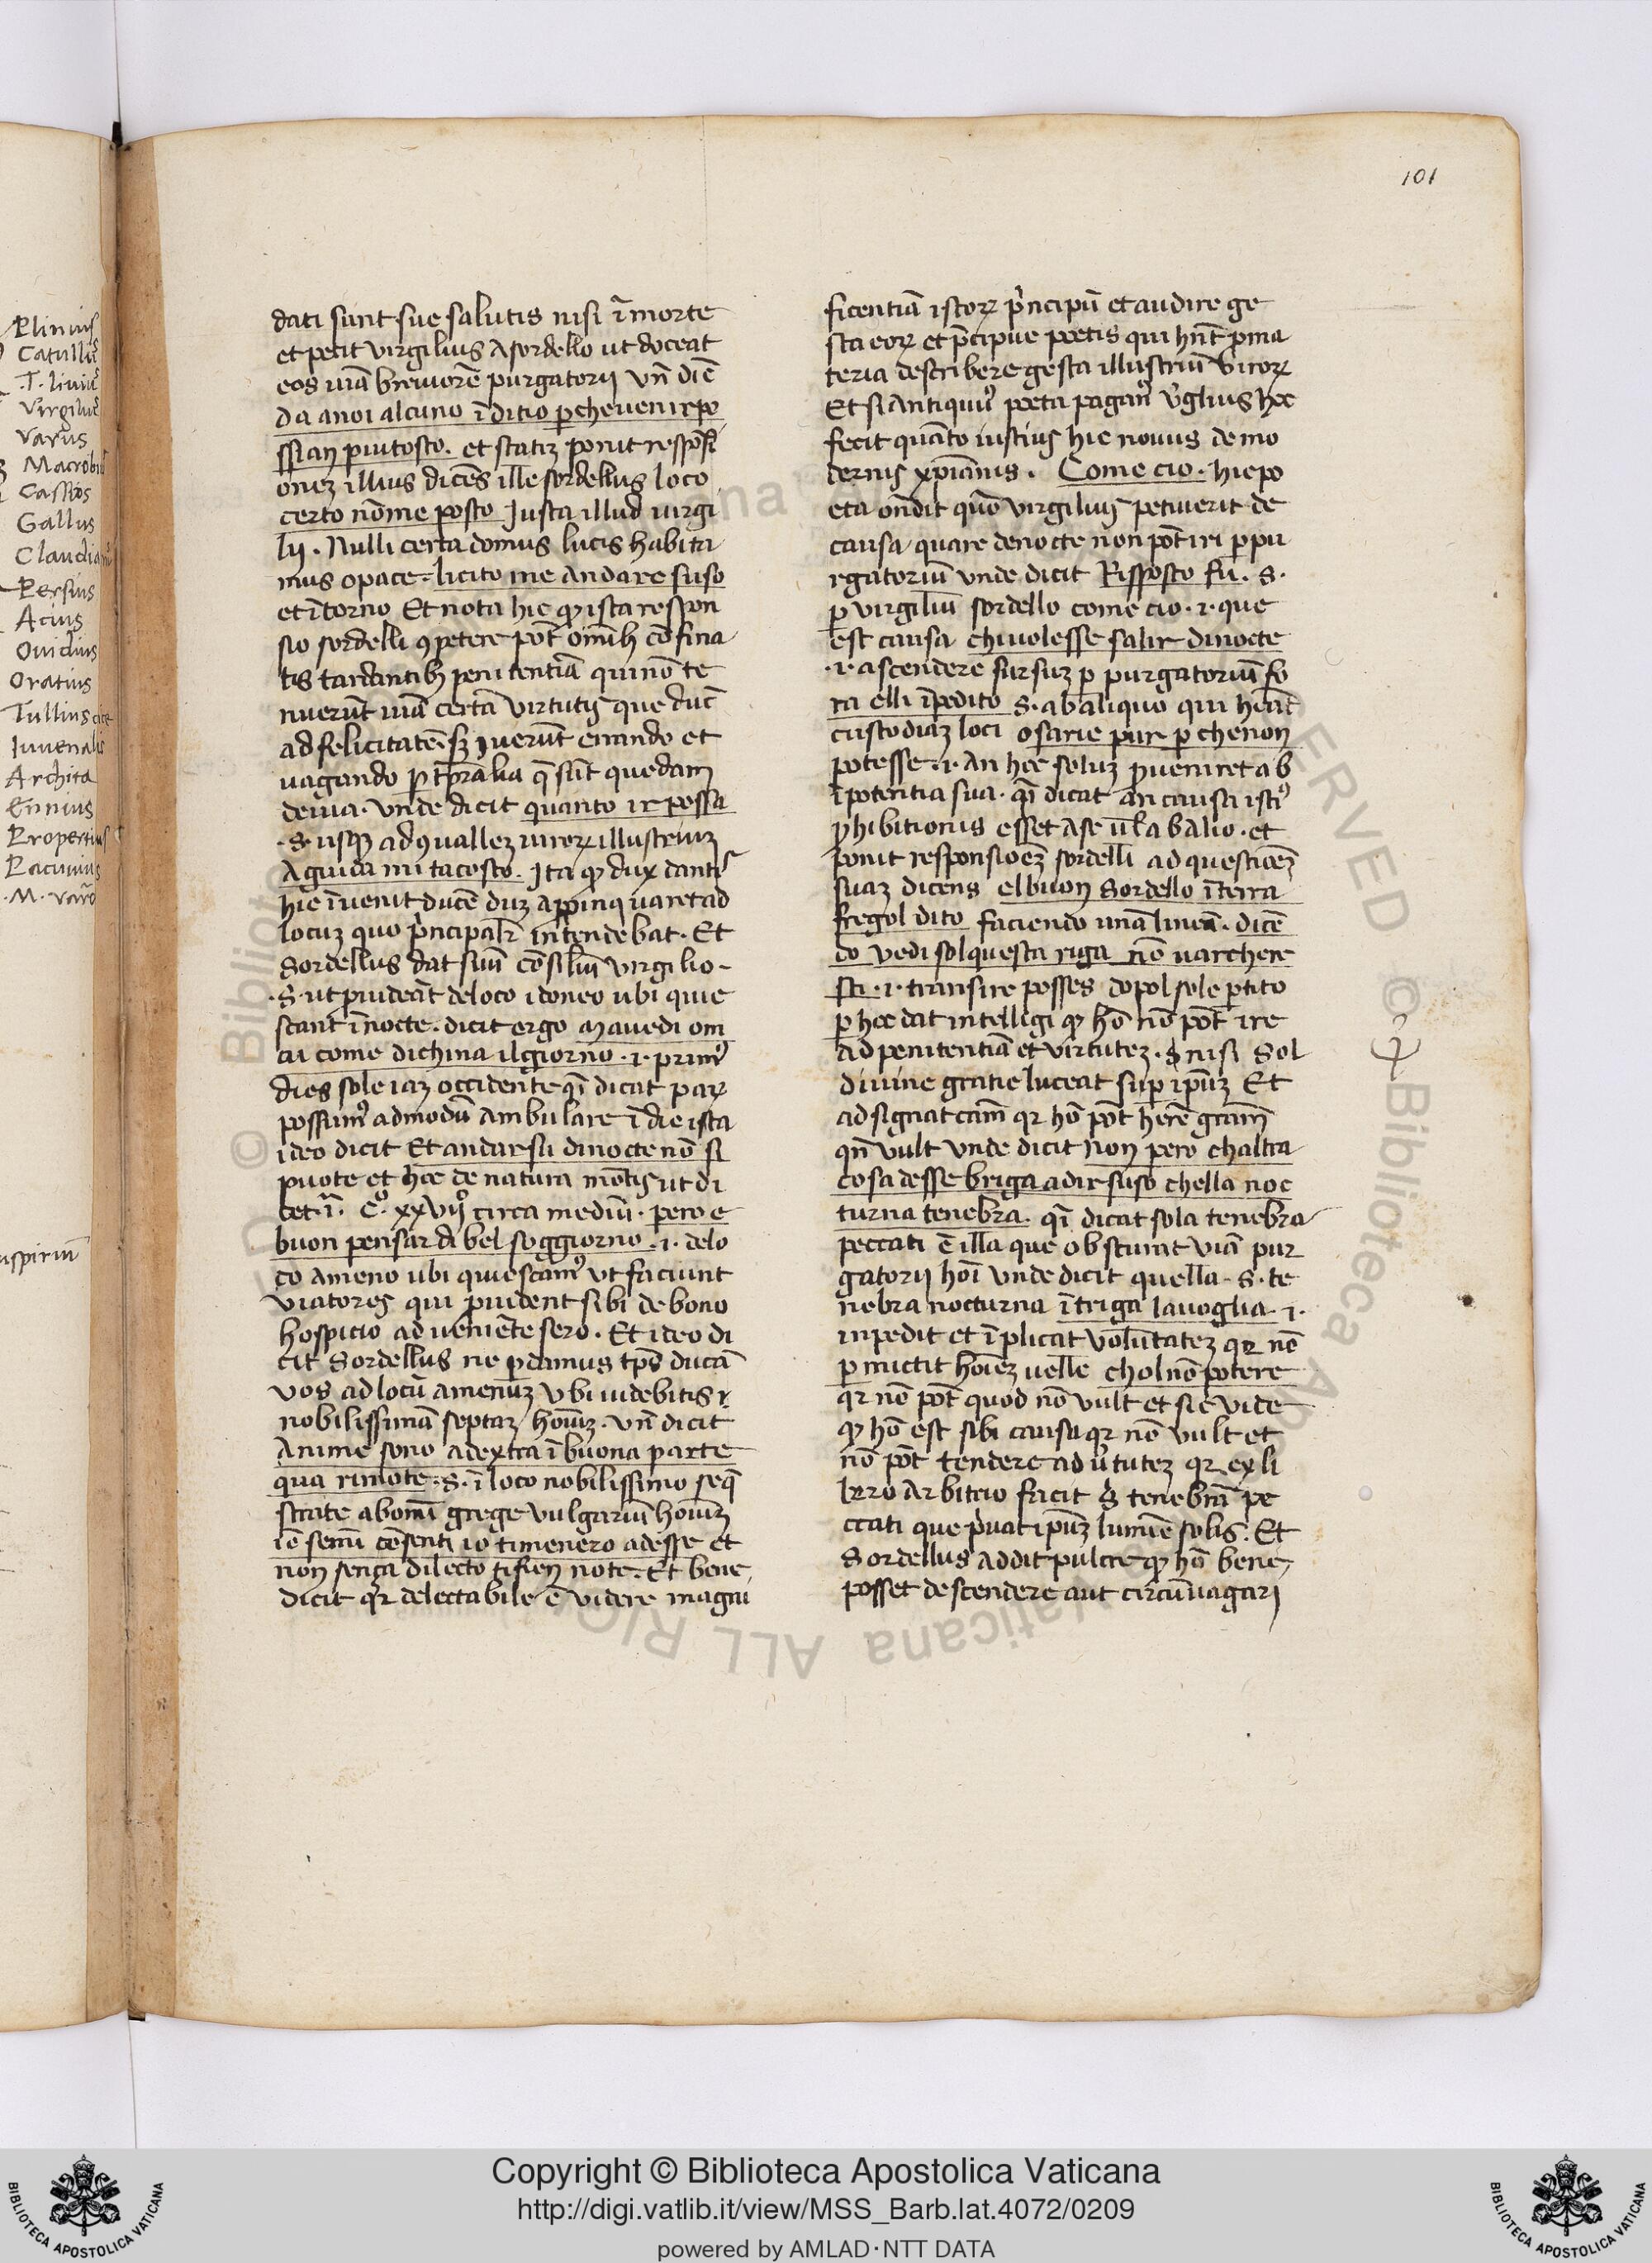 101
Plinius
Catullus
.T. liuius
Virgilius
Varus
Macrobius
Cassios
Gallus
Claudianus
Persius
Acius
Ouidius
Oratius
Tullius cice
Iuuenalis
Archita
Ennius
Propertius
Pacuuius
.M. varo
uspiriū
dati sunt sue salutis nisi ī morte
et petit virgilius a sordello ut doceat
eos uiā breuiorē purgatorij vn̄ dic̄
da anoi alcuno īditio ꝑcheuenir po
ssian piutosto. et statiʒ ponit respōsi
oneʒ illius dicēs ille sordellus loco
certo nōme posto Iusta illud uirgi
lij. Nulli certa domus lucis habita
mus opace. licito me andare suso
et ītorno Et nota hic ꝙ ista respon
sio sordelli ꝯpetere pōt oīnibꝫ cōfina
tis tardantibꝫ penitentiā qui nō te
nuerūt uiā certā virtutis que duc̄
ad felicitatē. sꝫ iuerūt errando et
uagando ꝑ tꝑalia q̄ sūt quedam
deuia. vnde dicit quanto ir possa
.S. usqꝫ ad ꝯualleʒ uiroꝝ illustriuʒ
A guida mi tacosto. Ita ꝙ dux dantis
hic īuenit ducē duʒ appinquaret ad
locuʒ quo prīncipalr̄ intendebat. Et
Sordellus dat suū cōsiliū virgilio.
.S. ut prouideāt de loco idoneo ubi quie
scant ī nocte. dicit ergo Ma uedi om
ai come dichina il giorno .i. primꝰ
dies sole iaʒ occidente qī dicat paꝝ
possumꝰ admodū ambulare ī die ista
ideo dicit Et andar su di nocte nō si
puote et hec de natura mōtis ut di
cet. ī. C°. xxvij° circa mediū. pero e
buon pensar di bel soggiorno .i. de lo
co ameno ubi quiescamꝰ vt faciunt
viatores qui prouident sibi de bono
hospicio ad ueniente sero. Et ideo di
cit Sordellus ne ꝑdamus tp̄s ducā
vos ad locū amenuʒ vbi uidebitis
nobilissimā septaʒ hoīuʒ. vn̄ dicit
Anime sono adextra ī buona parte
qua rimote .S. ī loco nobilissimo seq̄
strate ab omī grege vulgariū hoīuʒ
io semi cōsenti io ti menero adesse et
non sença dilecto ti fien note. Et bene
dicit qꝛ delectabile ē videre magni
ficentiā istoꝝ prīncipū et audire ge
sta eoꝝ et prēcipue poetis qui hn̄t ꝓ ma
teria describere gesta illustriū viroꝝ
Et si antiquiꝰ poeta paganꝰ v̄gilius hec
fecit quāto iustius hic nouus de mo
dernis xp̄ianis. Come cio. hic po
eta on̄dit quō virgilius petiuerit de
causa quare de nocte non pōt iri ꝑ pu
rgatoriū vnde dicit Risposto fu. S.
ꝑ virgiliū sordello come cio .i. que
est causa chi uolesse salir di nocte
.i. ascendere sursuʒ ꝑ purgatoriū fo
ra elli īpedito S. ab aliquo qui heāt
custodiaʒ loci o sarie pur ꝑ che non
potesse .i. an hec soluʒ ꝓueniret ab
īpotentia sua. qī dicat an causa istiꝰ
ꝓhibitionis esset a se ul̄ ab alio. et
ponit responsioēʒ sordelli ad questiōeʒ
suaʒ dicens el buon Sordello ī terra
frego l dito faciendo unā lineā. dicē
do vedi sol questa riga nō uarchere
sti .i. transire posses dopol sole ꝑtito
ꝑ hec dat intelligi ꝙ hō nō pōt ire
ad penitentiā et virtuteʒ. nisi Sol
diuine gratie luceat suꝑ ip̄uʒ Et
ad signat cam̄ qꝛ hō pōt here gram̄
qn̄ vult vnde dicit Non pero chaltra
cosa desse briga adir suso chella noc
turna tenebra. qī dicat sola tenebra
peccati ē illa que obscurat viā pur
gatorij hoī vnde dicit quella. S. te
nebra nocturna ītriga la uoglia .i.
inpedit et īplicat volūtateʒ qꝛ nō
ꝑmictit hoīeʒ uelle chol nō potere
qꝛ nō pōt quod nō vult et sic vide
ꝙ hō est sibi causa qꝛ nō vult et
nō pōt tendere ad v̄tuteʒ qꝛ ex li
bero arbitrio facit tenebrā pe
ccati que priuat ip̄uʒ lumīe solis. Et
Sordellus addit pulcre ꝙ hō bene
posset descendere aut circūuagari
Copyright © Biblioteca Apostolica Vaticana
http://digi.vatlib.it/view/MSS_Barb.lat.4072/0209
powered by AMLAD·NTT DATA
BIBLIOTECA APOSTOLICA VATICANA
BIBLIOTECA APOSTOLICA VATICANA